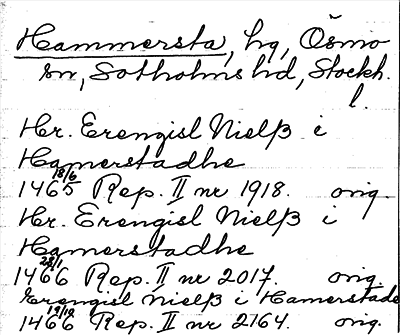 Hammersta, hg, Ösmo
sn, Sotholms hd, Stockh.
l.
Hr. Erengisl Nielß i
Hamerstadhe
18/6
1465 Rep. II nr 1918. orig.
Hr. Erengisl Nielß i
Hamerstadhe
1466 Rep. II nr 2017. orig.
Erengisl Nielß i Hamerstade
19/12
1466 Rep. II nr 2164. orig.